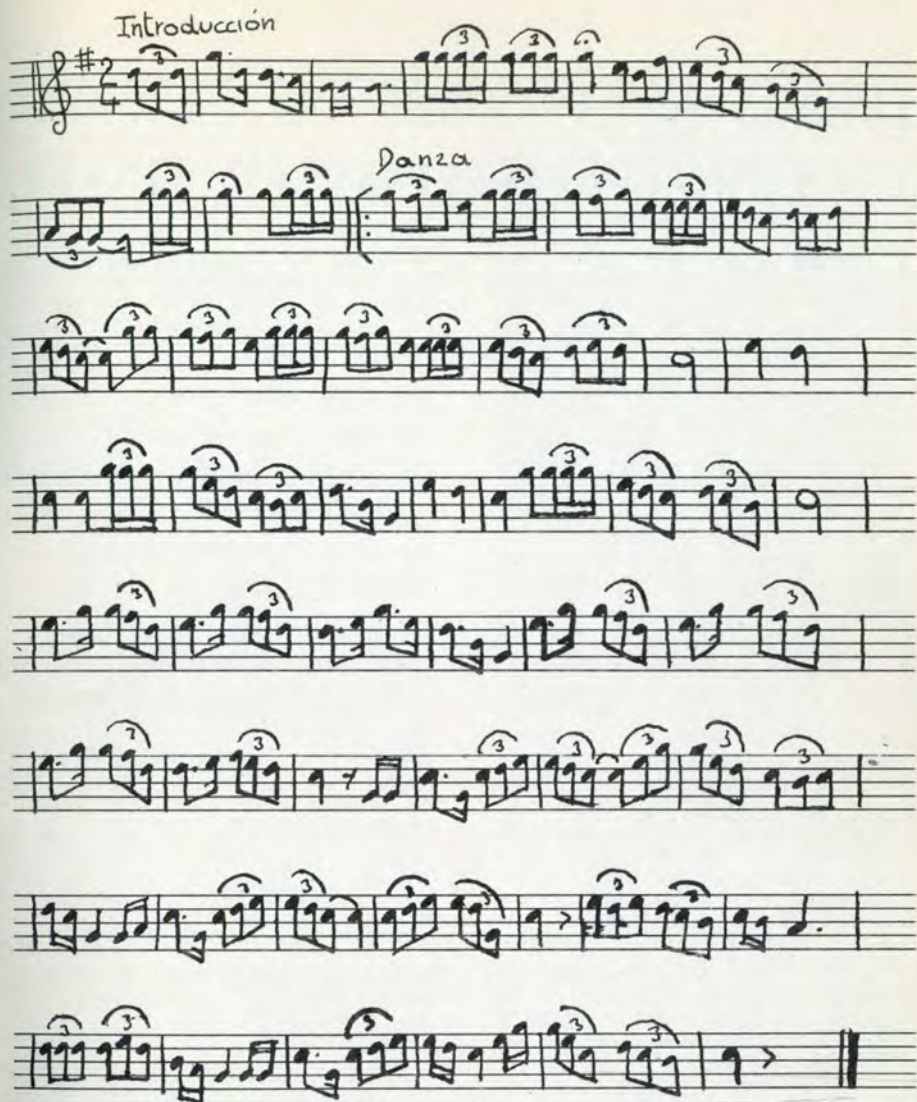 Introducción
Danza